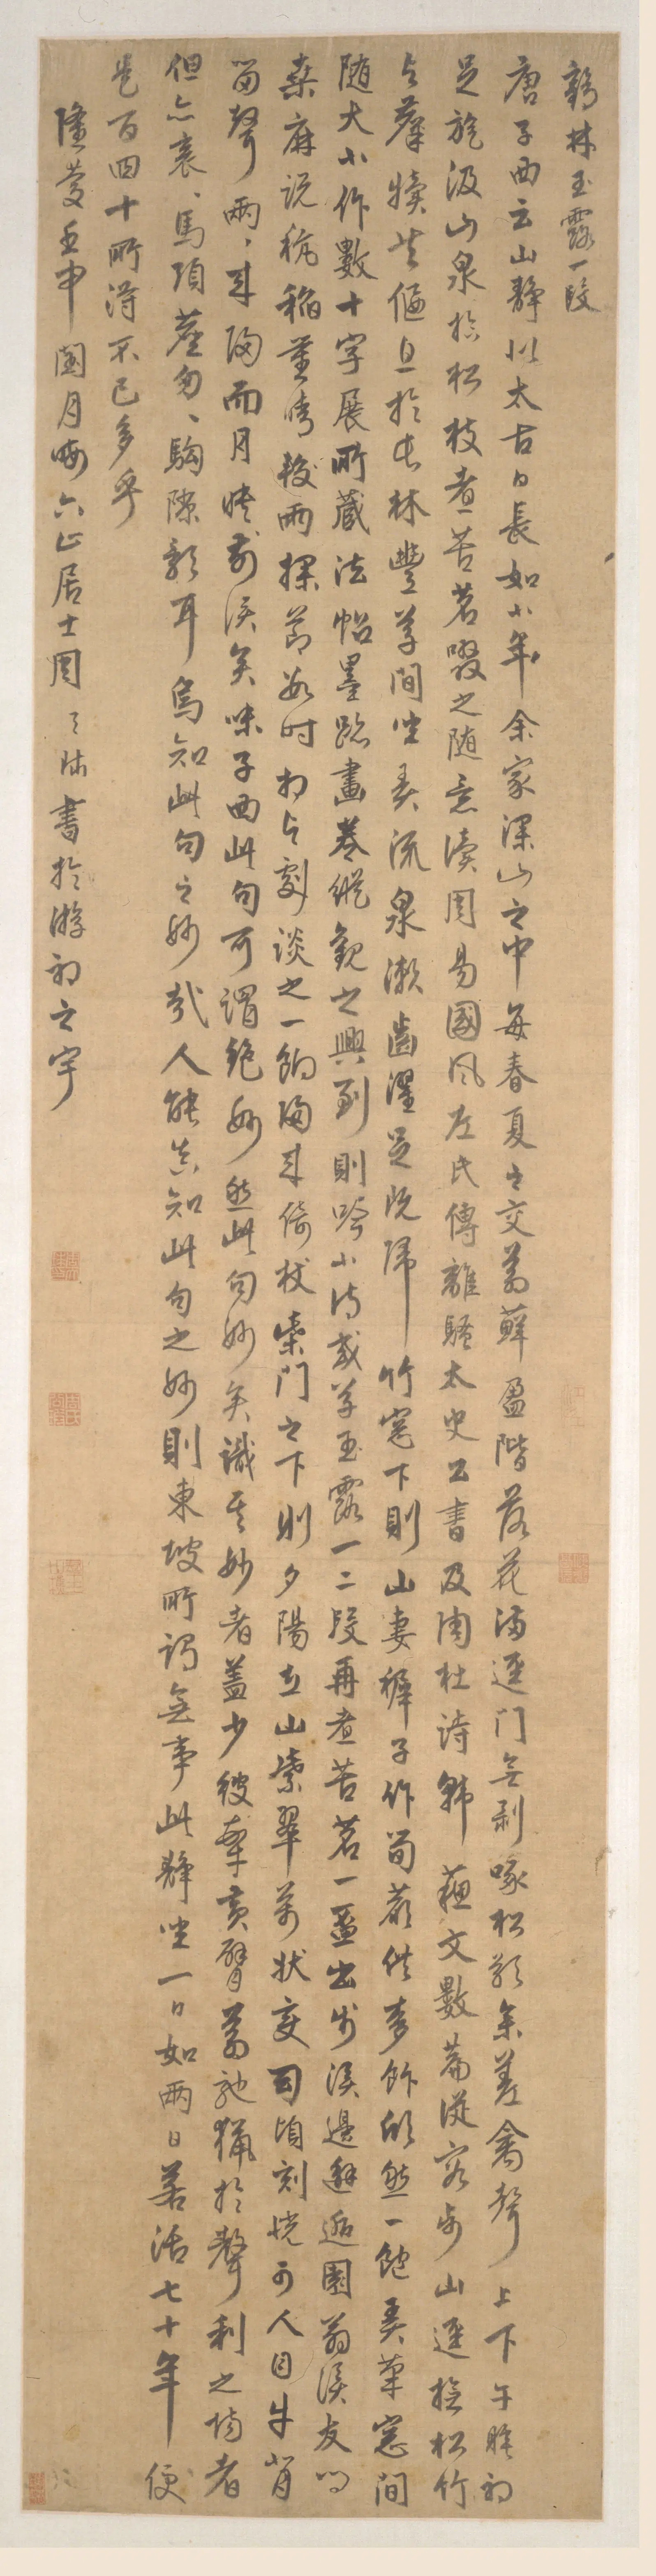 鶴林玉露一段
唐子西云山靜似太古日長如小年余家深山之中每春夏之交蒼蘚盈階落花滿逕门無剥啄松影参差禽聲上下午睡初
足旋汲山泉拾松枝煮苦茗啜之随意读周易國风左氏傳離騷太史公書及陶杜诗韩蘇文數篇從容步山逕撫松竹
与麋犢共偃息於长林豐草间坐弄流泉漱齒濯足既归竹窓下則山妻穉子作笋蕨供麥飰欣然一飽弄筆窓间
随大小作數十字展所藏法帖墨跡畫卷縱觀之興到則吟小诗或草玉露一二段再煮苦茗一盃出步溪邊邂逅園翁溪友问
桑麻说秔稻量晴较雨探节数时相与劇谈之一餉归来倚杖柴门之下则夕陽在山紫翠万状变幻頃刻恍可人目牛背
笛聲兩、来归而月映前溪矣味子西此句可谓绝妙然此句妙矣識其妙者蓋少彼牽黄臂蒼馳獵於聲利之场者
但見衮、馬頭塵匆、駒隙影耳烏知此句之妙哉人能真知此句之妙則東坡所谓無事此静坐一日如两日若活七十年便
是百四十所得不已多乎
隆慶壬申閏月晦六止居士周天球書於游初之宇